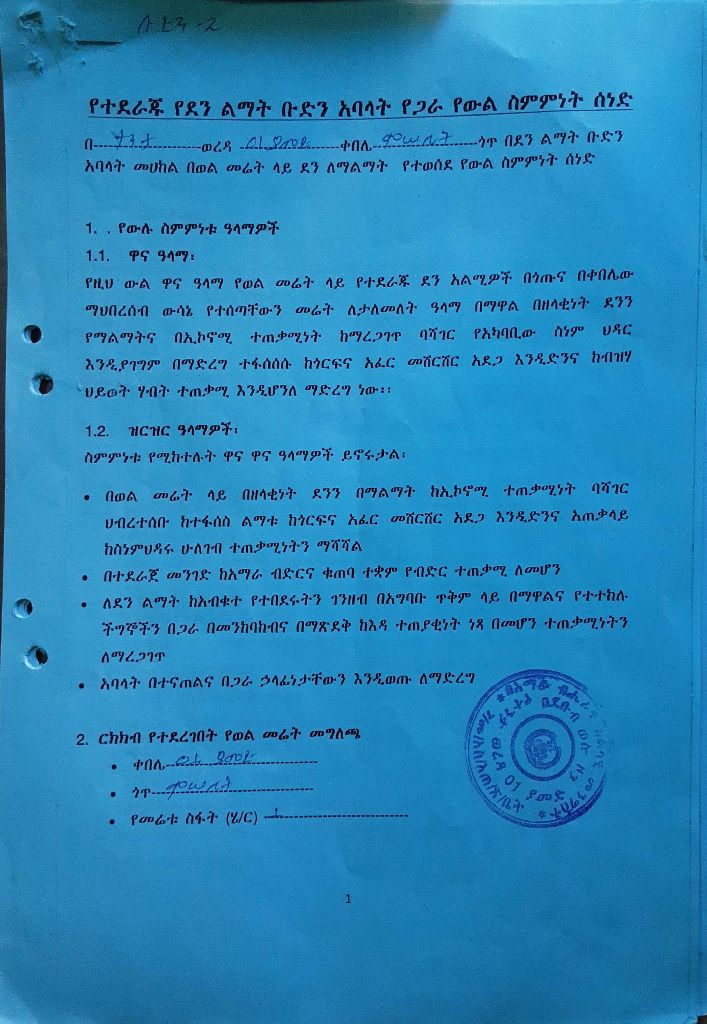 የተደራጁ የደን ልማት ቡድን አባላት የጋራ የውል ስምምነት ሰነድ
በ----------------ወረዳ ----------------ቀበሌ----------------ጎጥ በደን ልማት ቡድን
አባላት መሀከል በወል መሬት ላይ ደን ለማልማት የተወሰደ የውል ስምምነት ሰነድ
1. . የውሉ ስምምነቱ ዓላማዎች
1.1. ዋና ዓላማ፡
የዚህ ውል ዋና ዓላማ የወል መሬት ላይ የተደራጁ ደን አልሚዎች በጎጡና በቀበሌው
ማህበረሰብ ውሳኔ የተሰጣቸውን መሬት ለታለመለት ዓላማ በማዋል በዘላቂነት ደንን
የማልማትና በኢኮኖሚ ተጠቃሚነት ከማረጋገጥ ባሻገር የአካባቢው ስነም ህዳር
እንዲያገግም በማድረግ ተፋሰሰሱ ከጎርፍና አፈር መሸርሸር አደጋ እንዲድንና ከብዝሃ
ህይወት ሃብት ተጠቃሚ እንዲሆንለ ማድረግ ነው፡፡
1.2. ዝርዝር ዓላማዎች፡
ስምምነቱ የሚከተሉት ዋና ዋና ዓላማዎች ይኖሩታል፡
• በወል መሬት ላይ በዘላቂነት ደንን በማልማት ከኢኮኖሚ ተጠቃሚነት ባሻገር
ህብረተሰቡ ከተፋሰስ ልማቱ ከጎርፍና አፈር መሸርሸር አደጋ እንዲድንና አጠቃላይ
ከስነምህዳሩ ሁለገብ ተጠቃሚነትን ማሻሻል
• በተደራጀ መንገድ ከአማራ ብድርና ቁጠባ ተቋም የብድር ተጠቃሚ ለመሆን
• ለደን ልማት ከአብቁተ የተበደሩትን ገንዘብ በአግባቡ ጥቅም ላይ በማዋልና የተተከሉ
ችግኞችን በጋራ በመንከባከብና በማጽደቅ ከእዳ ተጠያቂነት ነጻ በመሆን ተጠቃሚነትን
ለማረጋገጥ
• አባላት በተናጠልና በጋራ ኃላፊነታቸውን እንዲወጡ ለማድረግ
2. ርክክብ የተደረገበት የወል መሬት መግለጫ
• ቀበሌ----------------
• ጎጥ----------------
• የመሬቱ ስፋት (ሄ/ር) ----------------
01 ያመድ
1